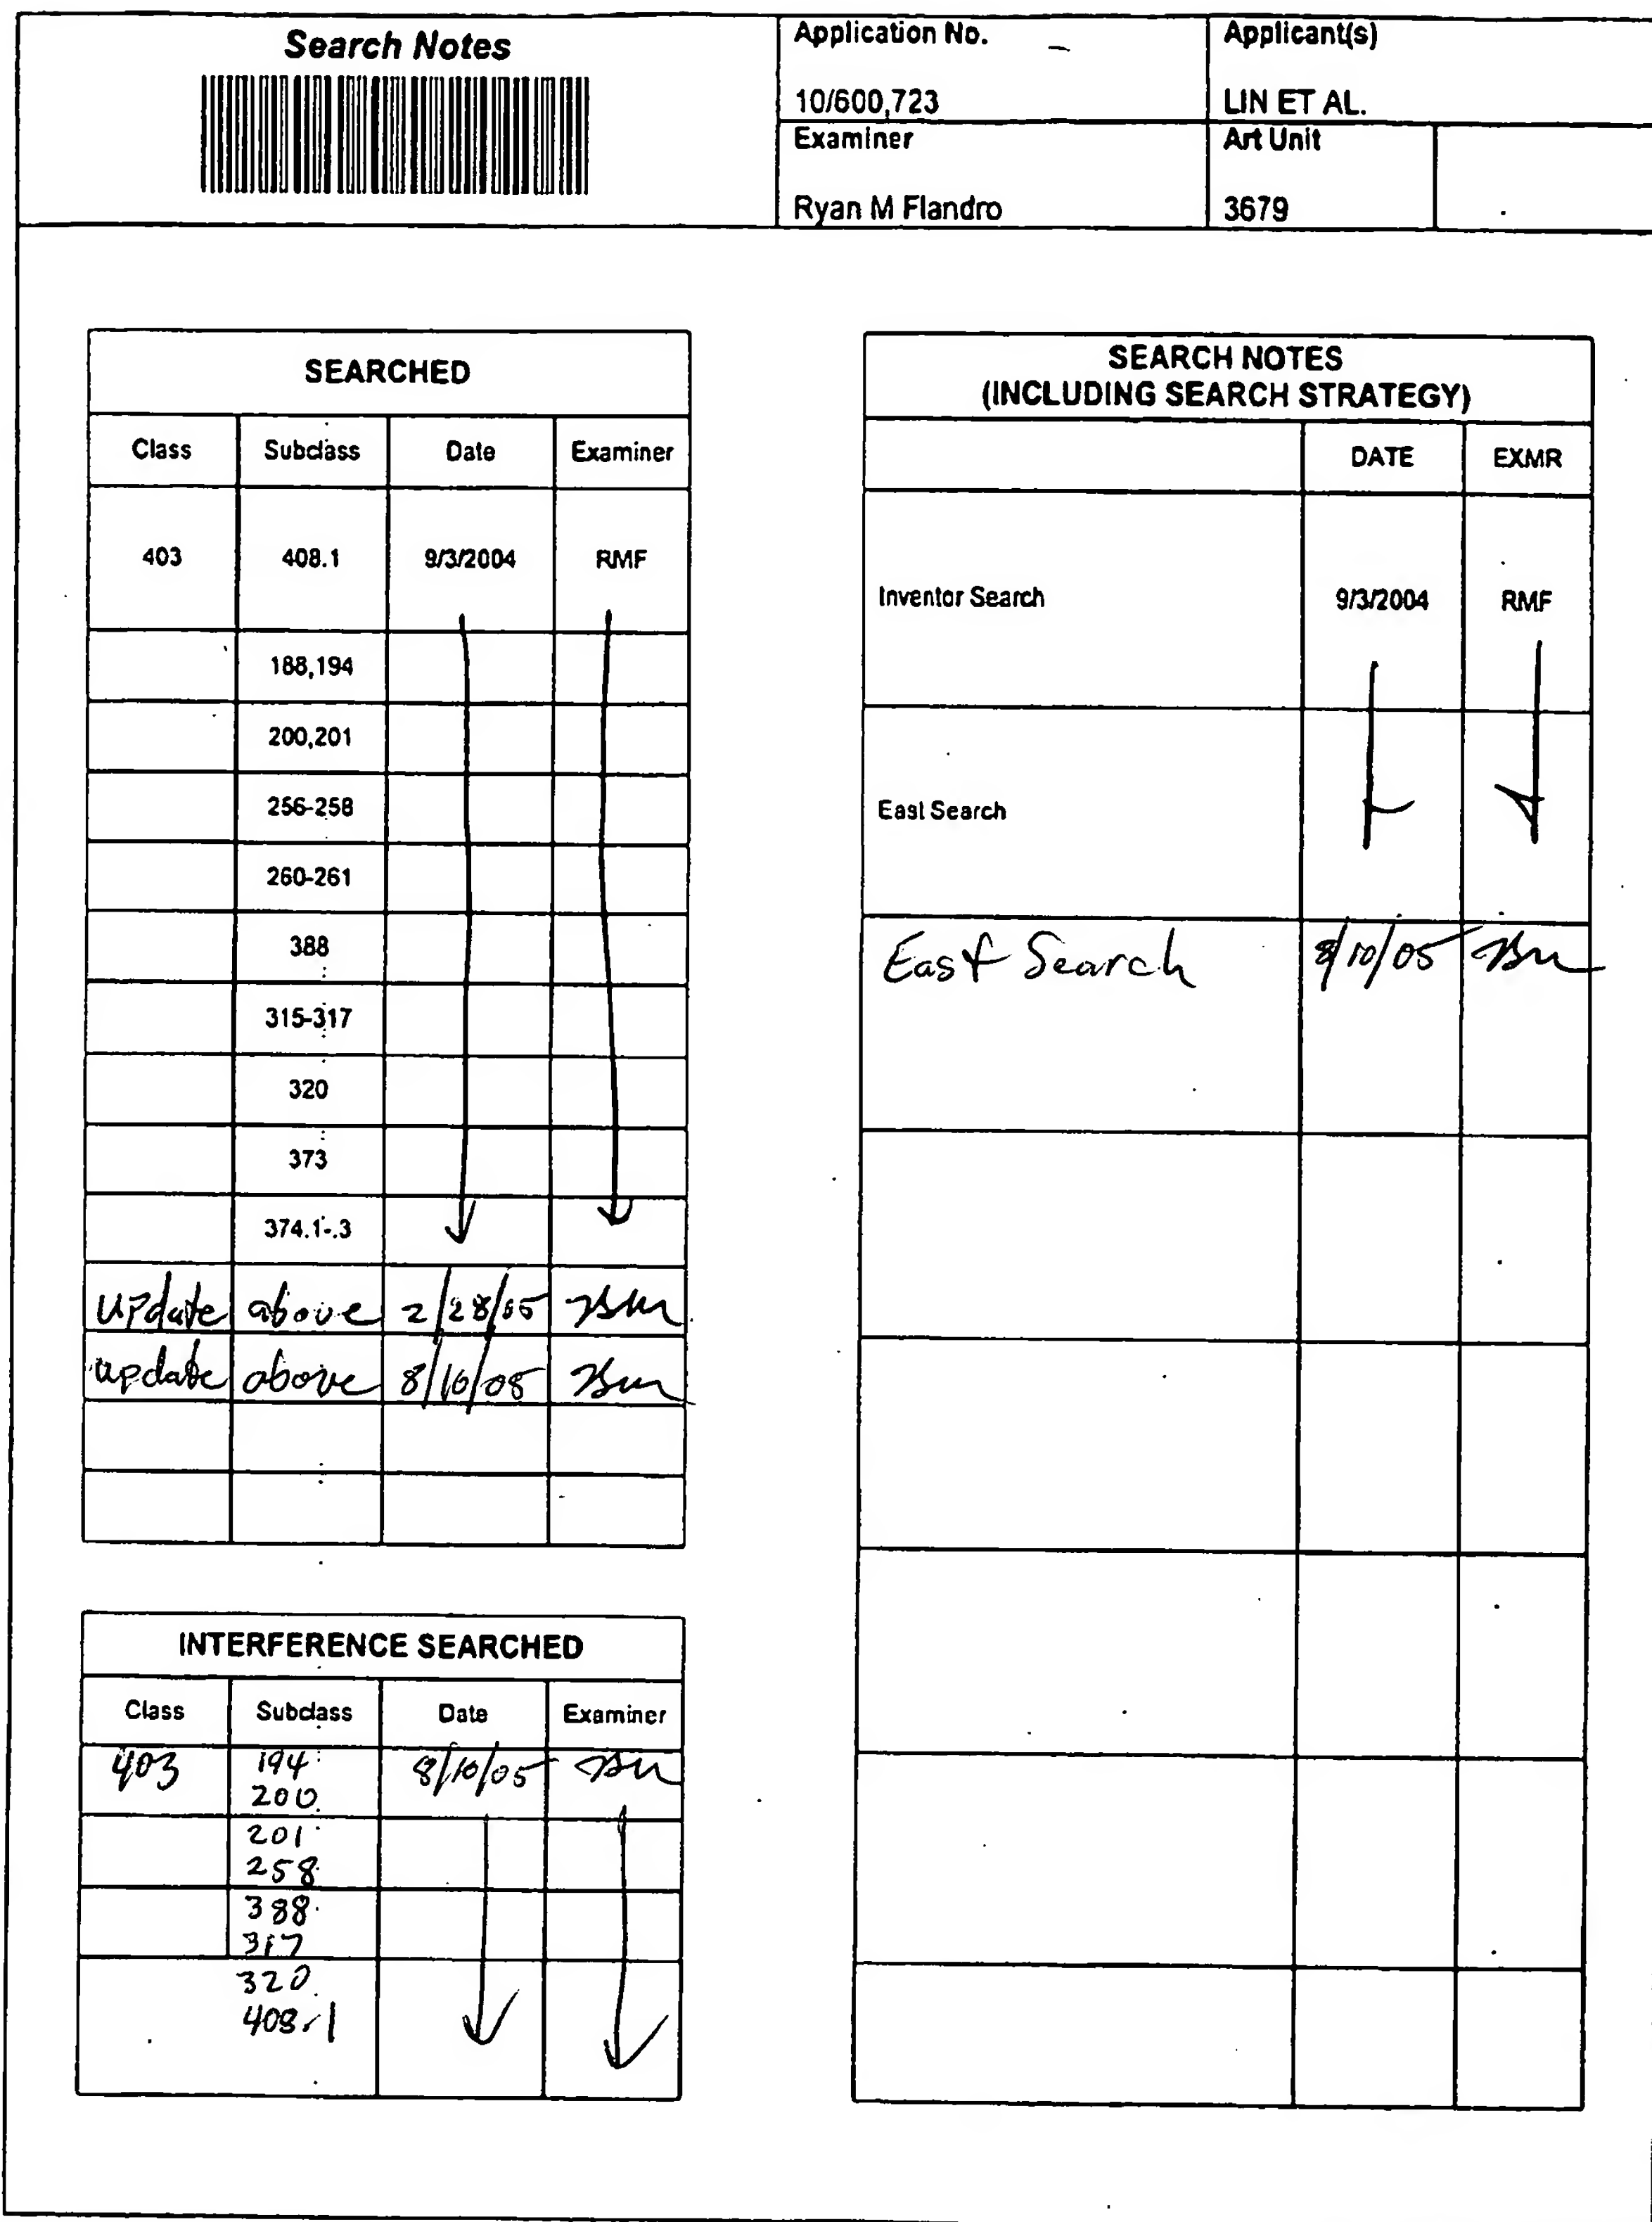 Search Notes
Application No.
10/600,723
Applicant(s)
LIN ET AL.
Examiner
Ryan M Flandro
Art Unit
3679
SEARCHED
Class Subclass Date Examiner
403 408.1 9/3/2004 RMF
188,194
200,201
256-258
260-261
388
315-317
320
373
374.1-.3
update above 2/28/05
update above 8/10/05
INTERFERENCE SEARCHED
Class Subclass Date Examiner
403 194 8/10/05
200
201
258
388
317
320
408.1
SEARCH NOTES
(INCLUDING SEARCH STRATEGY)
DATE EXMR
Inventor Search 9/3/2004 RMF
East Search
East Search 8/10/05